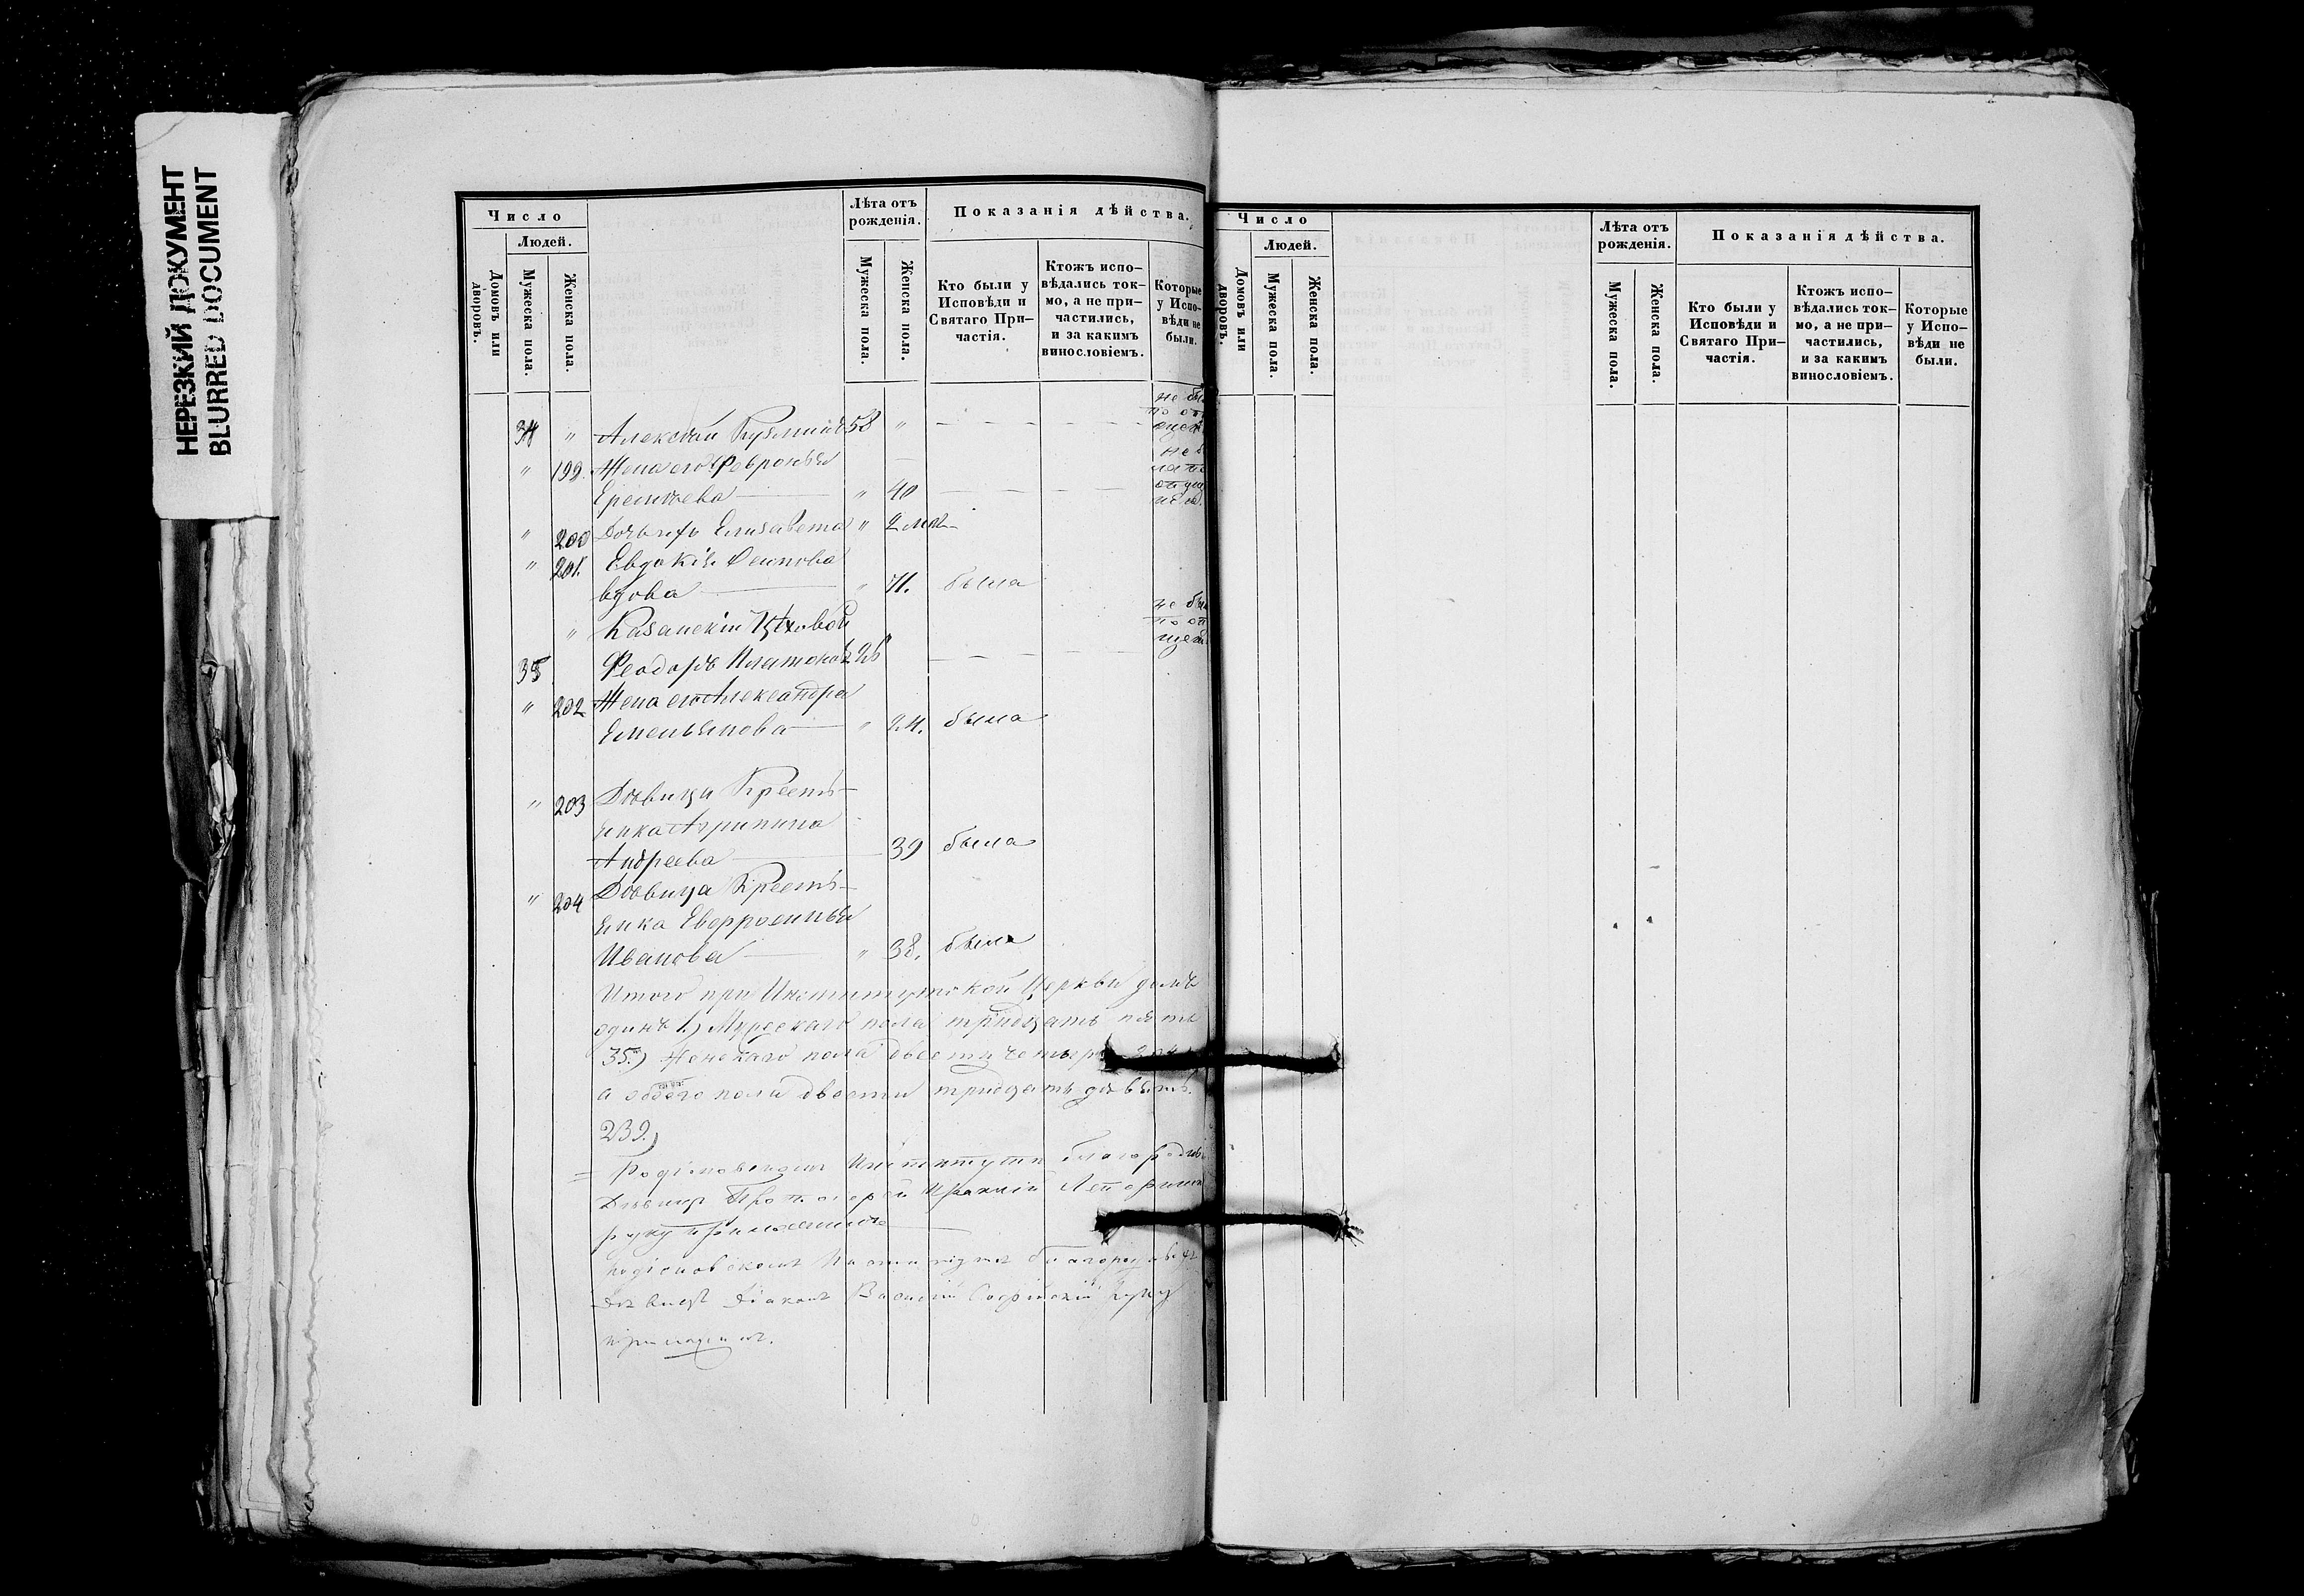 НЕРЕЗКИЙ ДОКУМЕНТ
BLURRED DOCUMENT
Число
Людей.
Домовъ или дворовъ.
Мужеска пола.
Женска пола.
Лѣта отъ рожденія.
Мужеска пола.
Женска пола.
Показанія дѣйства.
Кто были у Исповѣди и Святаго Причастія.
Ктожъ исповѣдались токмо, а не причастились, и за какимъ винословіемъ.
Которые у Исповѣди не были.
34 " Алексѣй Кузминъ 58 "
не бы
по от
" 199. Жена его Февронья
Еремѣева " 40
" 200 Дочь ихъ Елизавета " 2 лѣт
" 201. Евдокія Осипова
вдова " 71. была
" Казанскій Цѣховой
не бы
по от
35 Феодоръ Платоновъ 26 "
" 202 Жена его Александра
Емельянова " 24. была
" 203 Дѣвица Кресть-
янка Агрипина
Андреева 39 была
" 204 Дѣвица Кресть-
янка Евфросинья
Иванова " 38. была
Итого при Институтской Церкви домъ
одинъ 1.) Мужескаго пола тридцать пять
35.) Женскаго пола двѣсти четыре
а обоего пола двѣсти тридцать девять.
239.)
Родіоновскаго Института благородныхъ
Дѣвицъ Протоіерей
руку приложилъ
Родіоновскаго Института благородныхъ
Дѣвицъ Діаконъ Василій Софійскій руку
приложилъ.
Число
Людей.
Домовъ или дворовъ.
Мужеска пола.
Женска пола.
Лѣта отъ рожденія.
Мужеска пола.
Женска пола.
Показанія дѣйства.
Кто были у Исповѣди и Святаго Причастія.
Ктожъ исповѣдались токмо, а не причастились, и за какимъ винословіемъ.
Которые у Исповѣди не были.